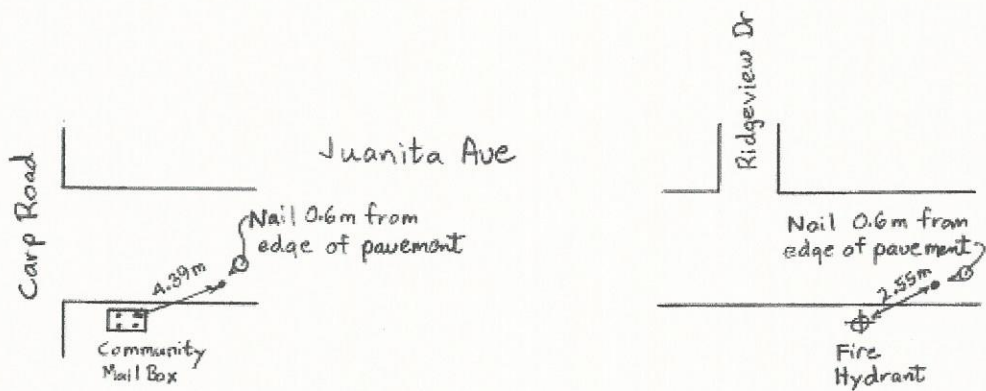 Carp Road
Juanita Ave
Nail 0.6m from
edge of pavement
4.39m
Community
Mail Box
Ridgeview Dr
Nail 0.6m from
edge of pavement
2.55m
Fire
Hydrant